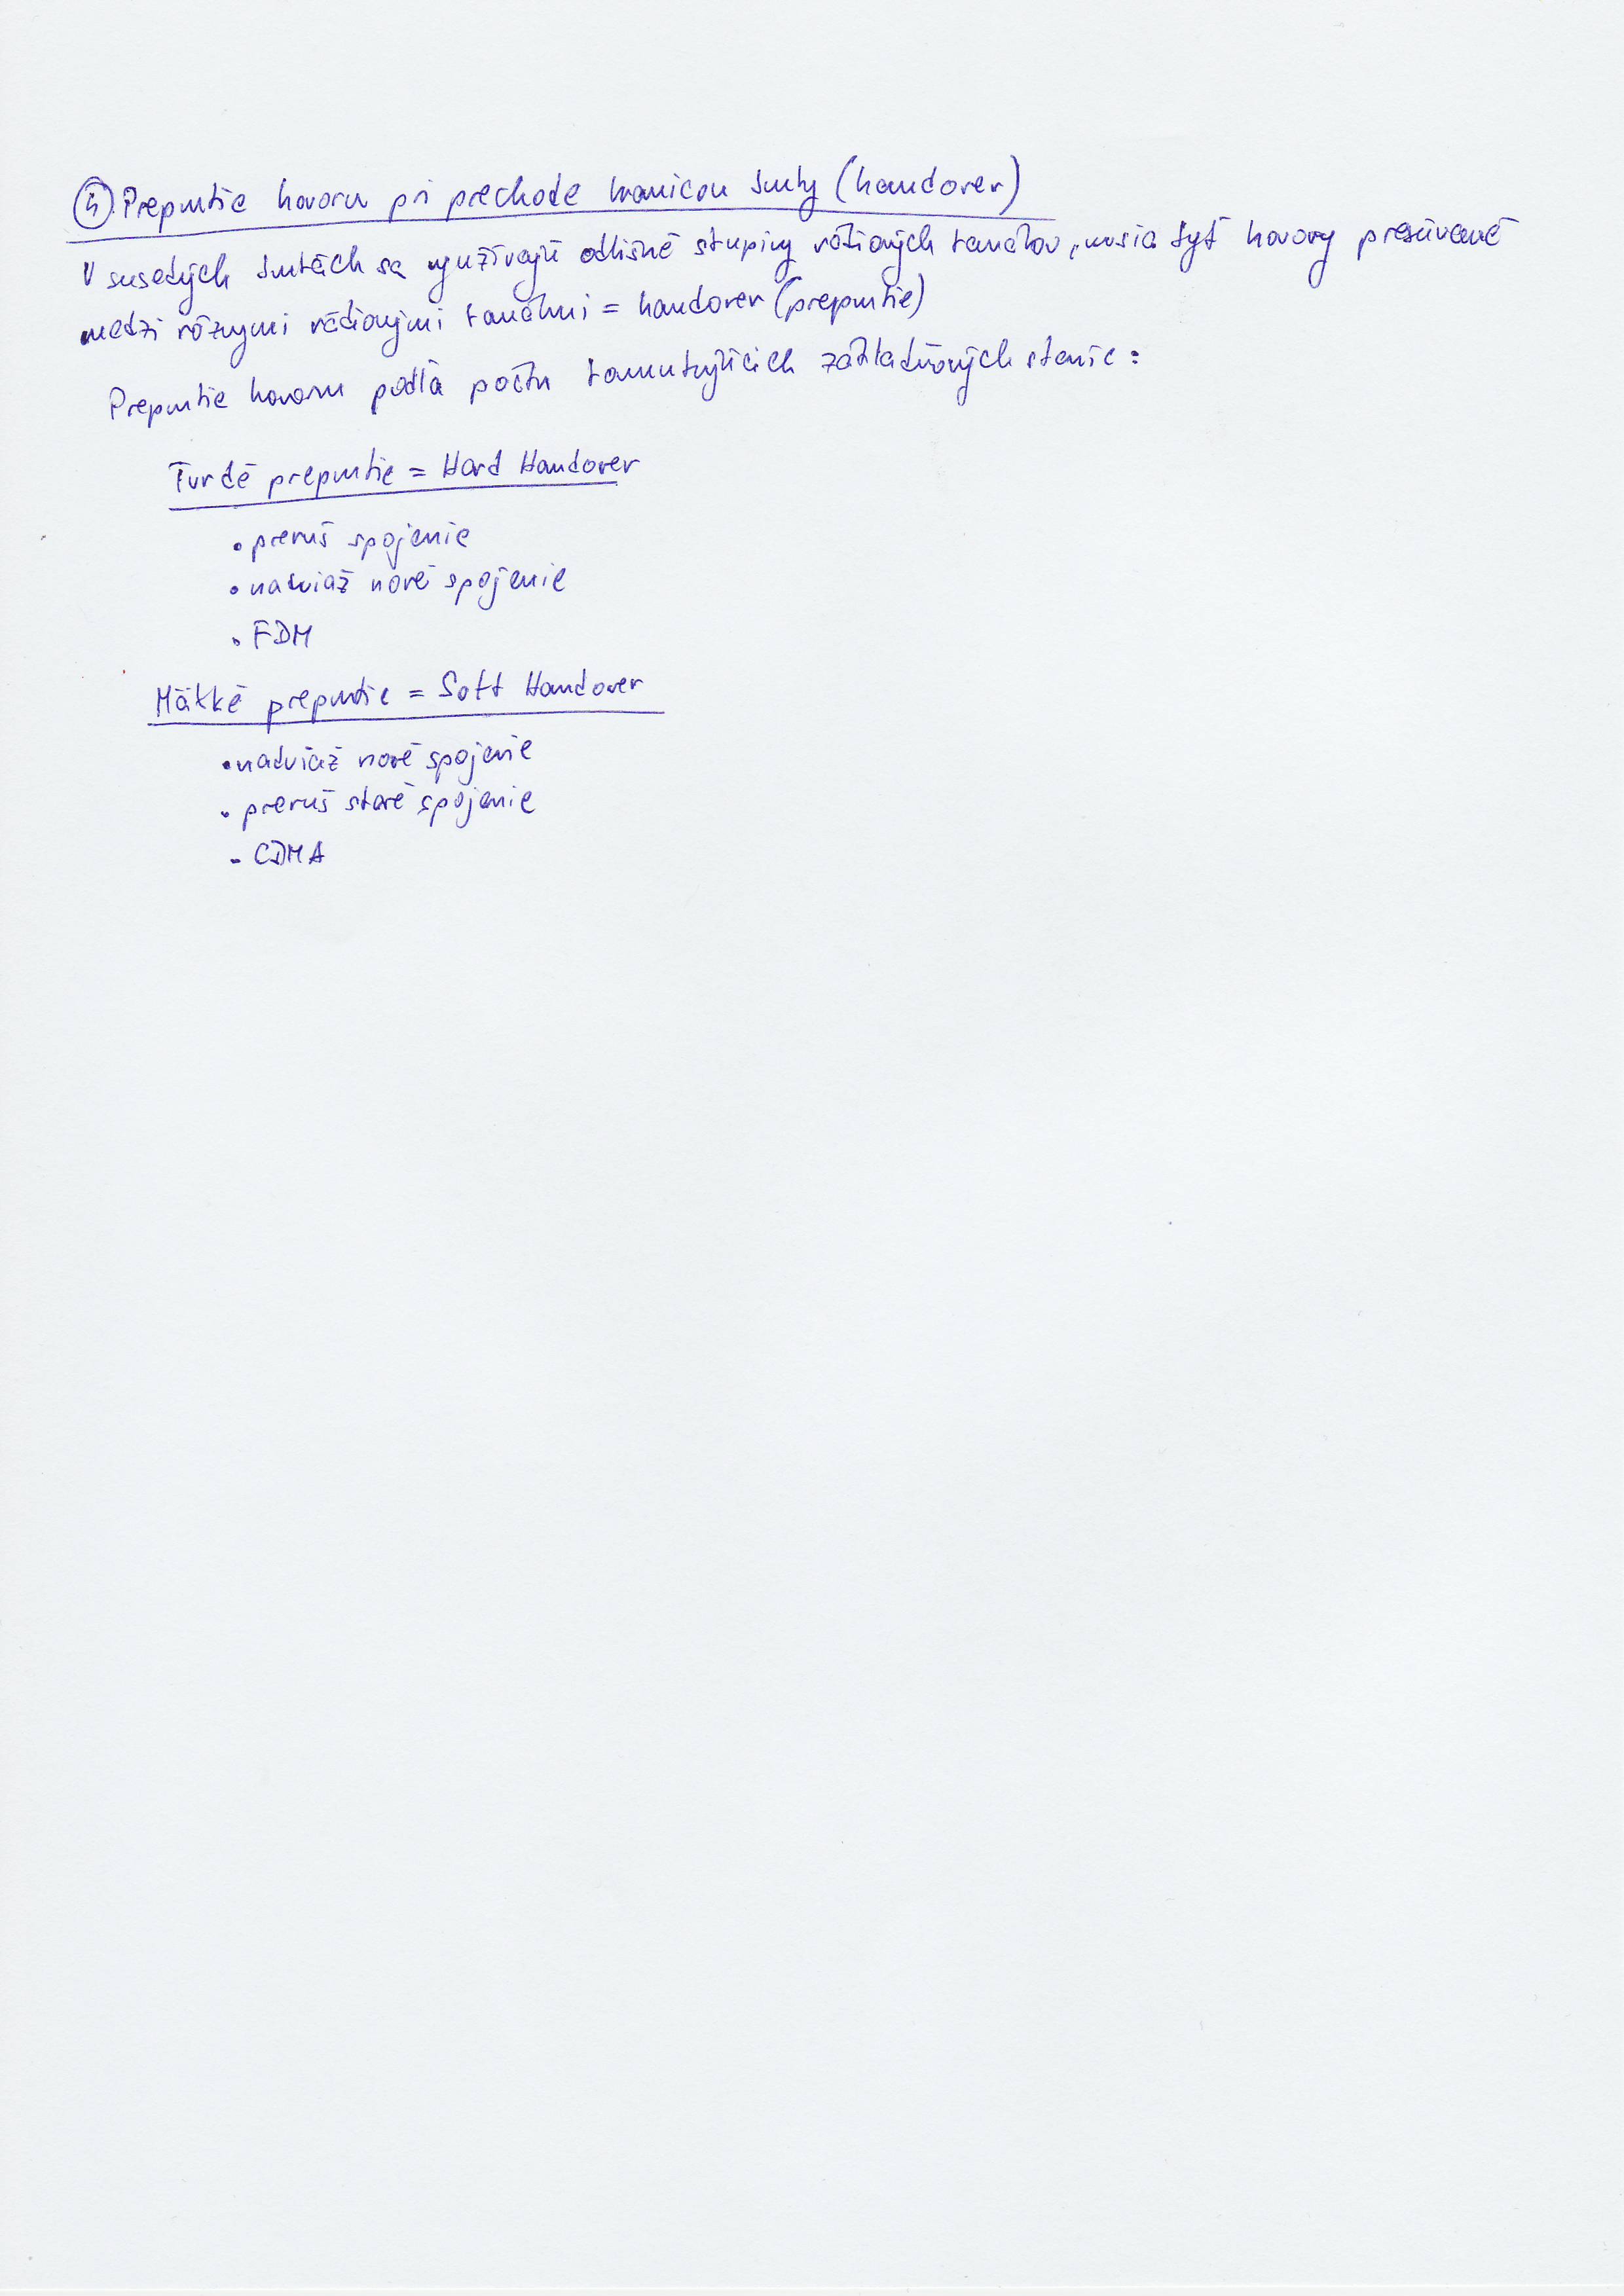 ④ Prepnutie hovoru pri prechode hranicou bunky (handover)
V susedných bunkách sa využívajú odlišné skupiny rádiových kanálov, musia byť hovory presúvané
medzi rôznymi rádiovými kanálmi = handover (prepnutie)
Prepnutie hovoru podľa počtu komunikujúcich základňových staníc:
Tvrdé prepnutie = Hard Handover
• preruš spojenie
• nadviaž nové spojenie
• FDM
Mäkké prepnutie = Soft Handover
• nadviaž nové spojenie
• preruš staré spojenie
- CDMA